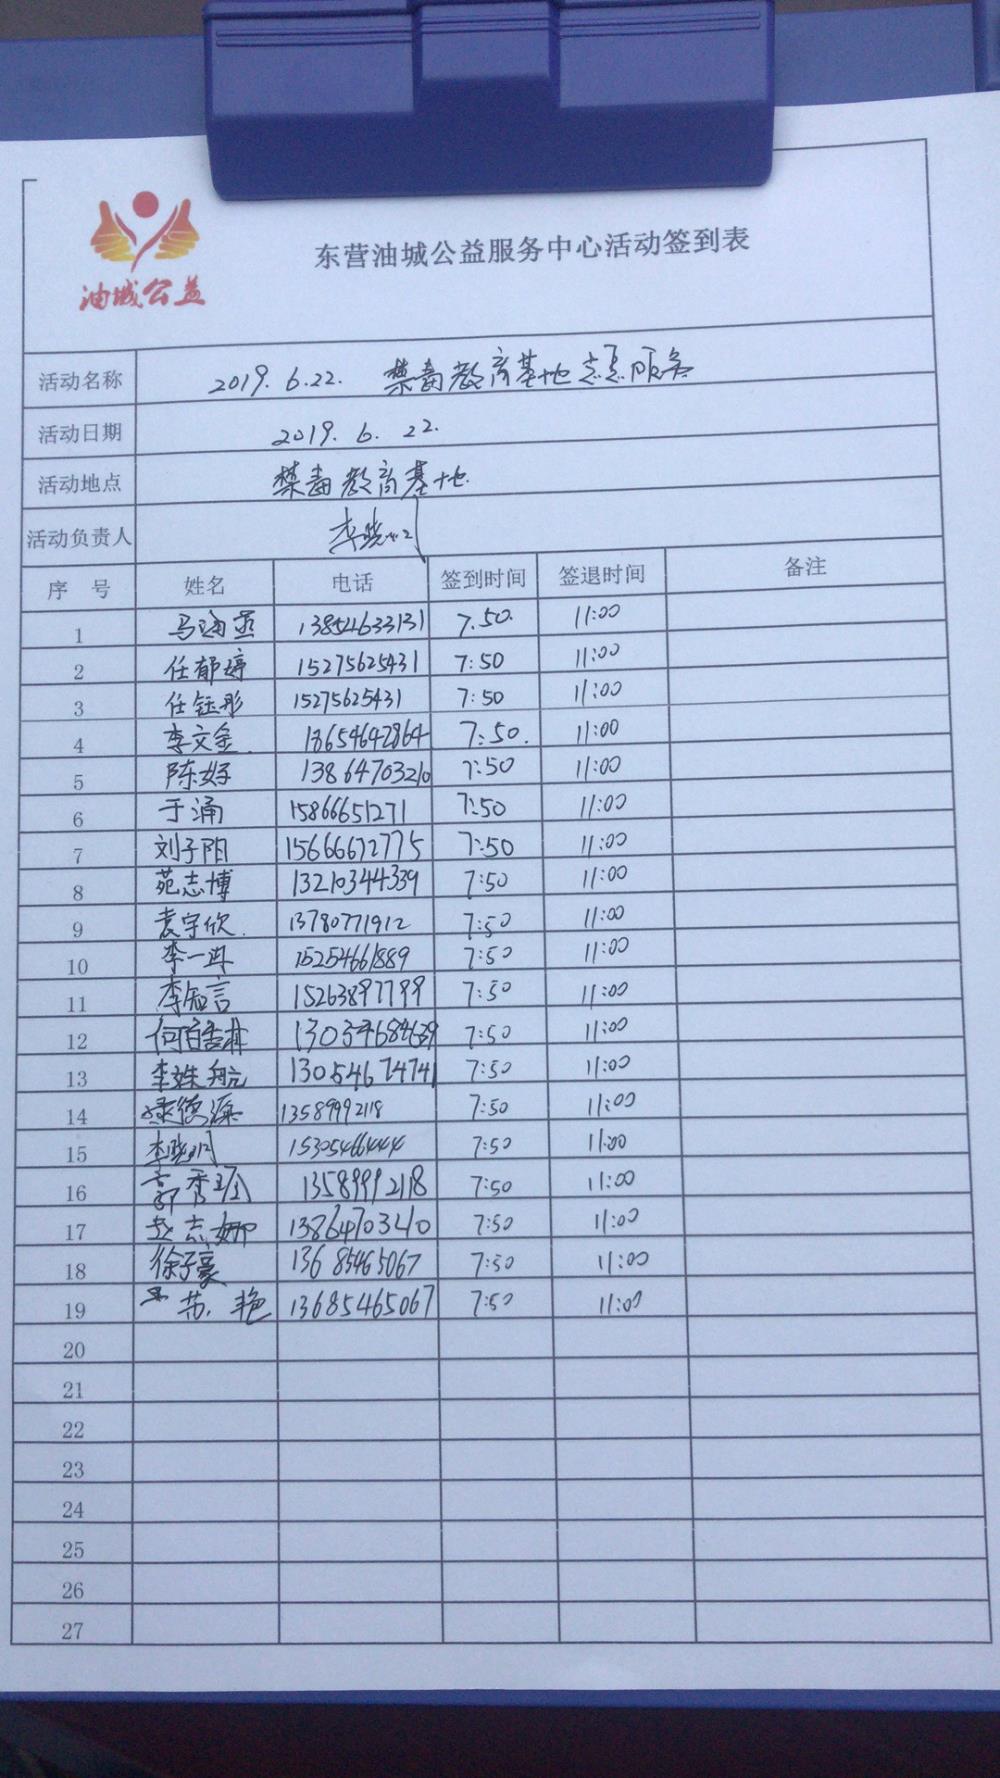 油城公益
东营油城公益服务中心活动签到表
活动名称 2019.6.22. 禁毒教育基地志愿服务
活动日期 2019.6.22.
活动地点 禁毒教育基地.
活动负责人 李晓明
序号 姓名 电话 签到时间 签退时间 备注
1 马 13854633131 7.50. 11:00
2 任郁婷 15275625431 7:50 11:00
3 任钰彤 15275625431 7:50 11:00
4 李文金. 18654642864 7:50. 11:00
5 陈好 13864703210 7:50 11:00
6 于涌 15866651271 7:50 11:00
7 刘子阳 15666672775 7:50 11:00
8 苑志博 13210344339 7:50 11:00
9 袁宇欣. 13780771912 7:50 11:00
10 李一冉 15254661889 7:50 11:00
11 李知言 15263897799 7:50 11:00
12 7:50 11:00
13 李姝航 13054674741 7:50 11:00
14 德源 13589992118 7:50 11:00
15 李晓明 15305466444 7:50 11:00
16 13589992118 7:50 11:00
17 赵志娜 7:50 11:00
18 徐子豪 13685465067 7:50 11:00
19 苏艳 13685465067 7:50 11:00
20
21
22
23
24
25
26
27